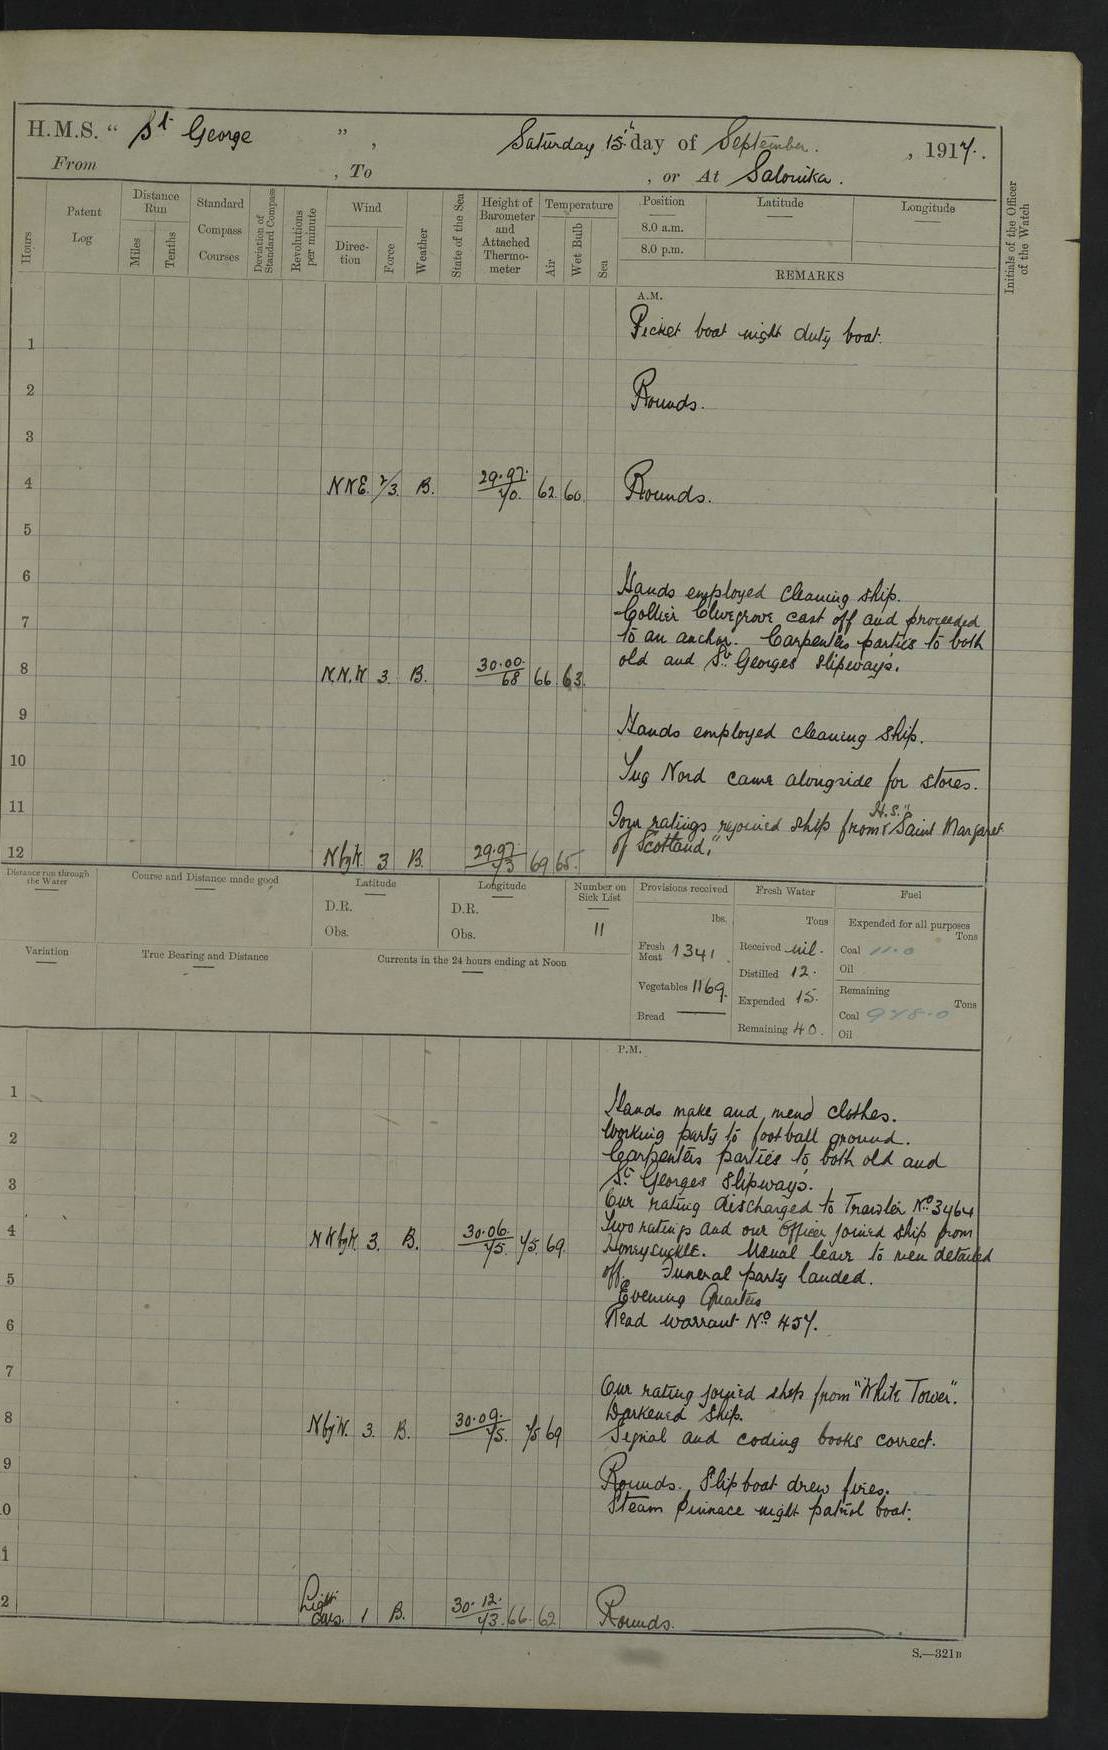 H.M.S. “ St George ” ,
Saturday 15th day of September. , 1917.
From , To , or At Salonika.
Hours
Patent Log
Distance Run
Miles
Tenths
Standard Compass Courses
Deviation of Standard Compass
Revolutions per minute
Wind
Direc-tion
Force
Weather
State of the Sea
Height of Barometer and Attached Thermo-meter
Temperature
Air
Wet Bulb
Sea
Position
8.0 a.m.
8.0 p.m.
Latitude
Longitude
REMARKS
Initials of the Officer of the Watch
A.M.
Picket boat night duty boat.
1
2
Rounds.
3
4 NNE. 2/3 B. 29.97. 70. 62 60. Rounds.
5
6
Hands employed cleaning ship.
7
Collier Clivegrove cast off and proceeded
to an anchor. Carpenters parties to both
old and St. Georges slipways.
8 N.N.W 3. B. 30.00. 68 66 63.
9
Hands employed cleaning ship.
10
Tug Nord came alongside for stores.
11
Four ratings rejoined ship from H.S. "Saint Margaret
of Scotland."
12 NbyW. 3 B. 29.97 73 69 65.
Distance run through the Water
Course and Distance made good
Latitude
D.R.
Obs.
Longitude
D.R.
Obs.
Number on Sick List
11
Provisions received
lbs.
Fresh Meat 1341
Vegetables 1169.
Bread
Fresh Water
Tons
Received nil.
Distilled 12.
Expended 15.
Remaining 40.
Fuel
Expended for all purposes
Tons
Coal 11.0
Oil
Remaining
Tons
Coal 978.0
Oil
Variation
True Bearing and Distance
Currents in the 24 hours ending at Noon
P.M.
1
Hands make and mend clothes.
2
Working party to football ground.
Carpenters parties to both old and
3
St. Georges slipways.
One rating discharged to Trawler No. 3464
4 NWbyW 3. B. 30.06. 75. 75 69.
Two ratings and one Officer joined ship from
Honeysuckle. Usual leave to men detailed
5
off. Funeral party landed.
Evening Quarters
6
Read warrant No. 457.
7
One rating joined ship from "White Tower".
Darkened Ship.
8 NbyW. 3. B. 30.09. 75. 75 69
Signal and coding books correct.
9
Rounds. Slip boat drew fires.
0
Steam Pinnace night patrol boat.
1
2 Light airs. 1 B. 30.12. 73. 66. 62 Rounds.
S.—321B